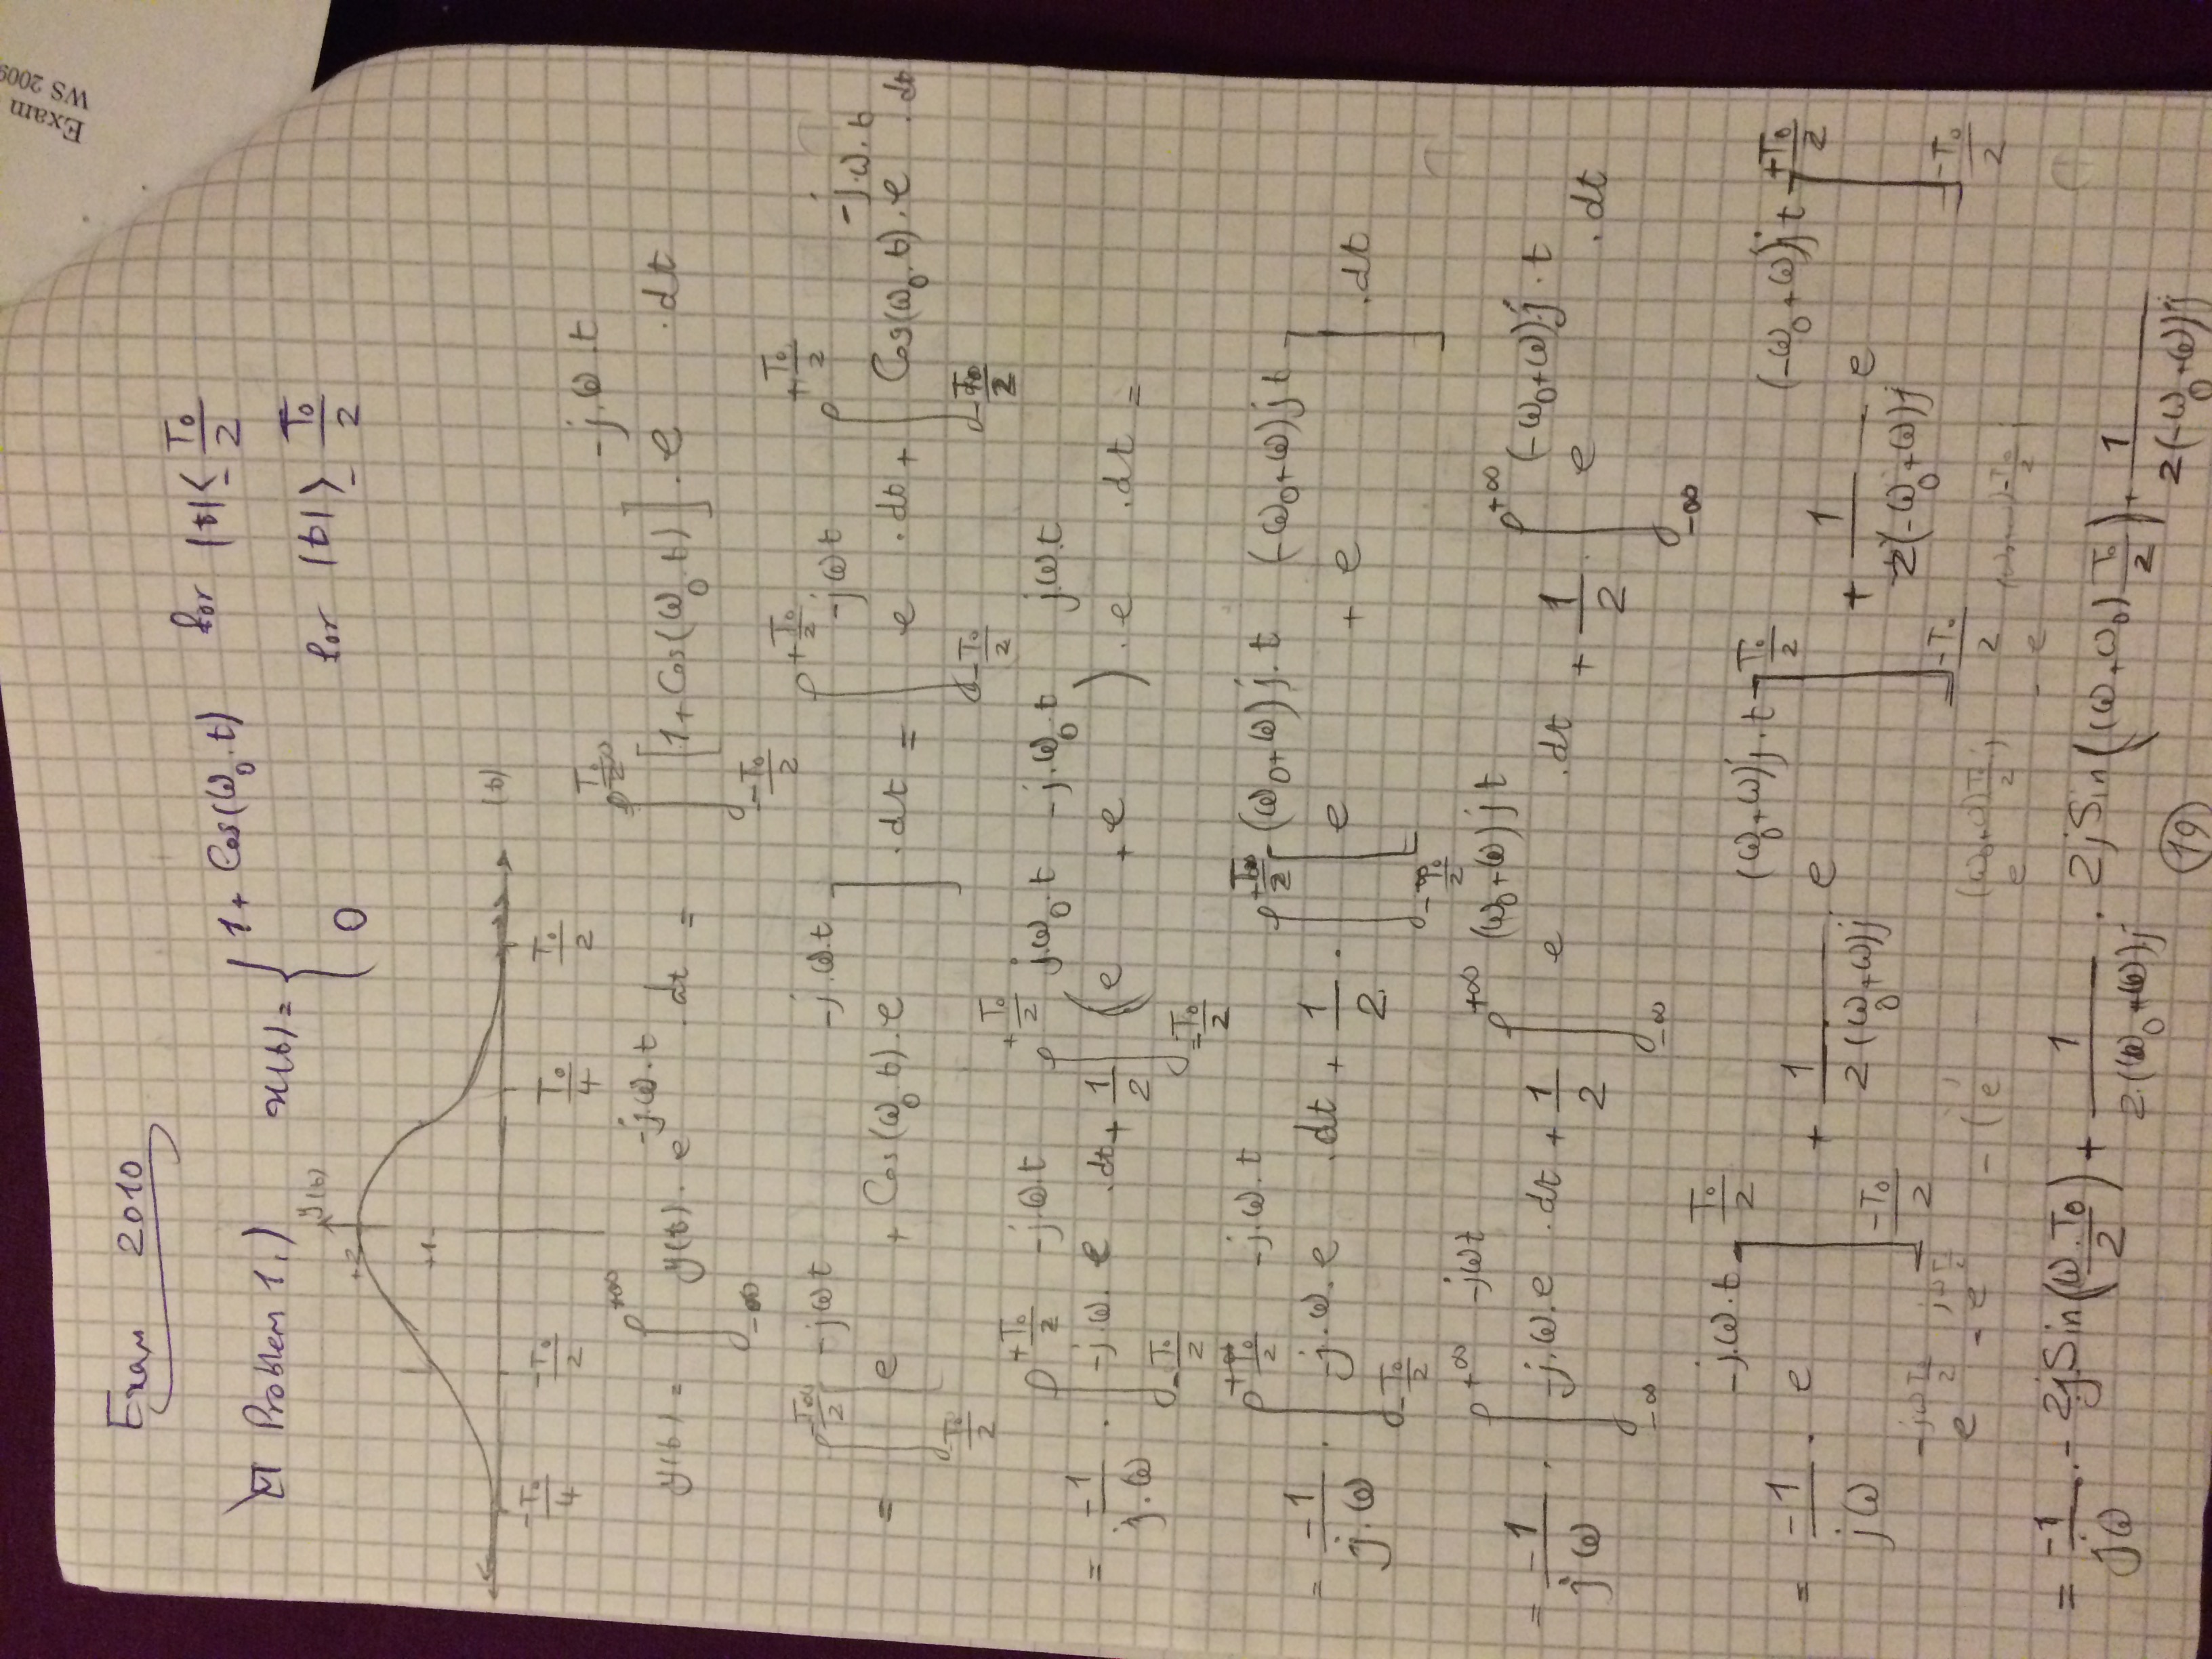 Exam
WS 2009
Exam 2010
Problem 1.) x(t) = { 1 + Cos(ω₀.t) for |t| ≤ T₀/2
0 for |t| ≥ T₀/2
y(t)
+2
+1
(t)
-T₀/4 -T₀/2 T₀/4 T₀/2
y(t) = ∫_{-∞}^{+∞} y(t) . e^{-j.ω.t} . dt = ∫_{-T₀/2}^{T₀/2} [1 + Cos(ω₀.t)] . e^{-j.ω.t} . dt
= ∫_{-T₀/2}^{-T₀/2} [e^{-jωt} + Cos(ω₀.t) . e^{-j.ω.t}] . dt = ∫_{-T₀/2}^{+T₀/2} e^{-jωt} . dt + ∫_{-T₀/2}^{+T₀/2} Cos(ω₀.t) . e^{-j.ω.t} . dt
= -1/j.ω . ∫_{-T₀/2}^{+T₀/2} -j.ω. e^{-j.ω.t} . dt + 1/2 ∫_{-T₀/2}^{+T₀/2} (e^{j.ω₀.t} + e^{-j.ω₀.t}) . e^{j.ω.t} . dt =
= -1/j.ω . ∫_{-T₀/2}^{+T₀/2} -j.ω. e^{-j.ω.t} . dt + 1/2 . ∫_{-T₀/2}^{+T₀/2} [e^{(ω₀+ω)j.t} + e^{(-ω₀+ω)jt}] . dt
= -1/jω . ∫_{-∞}^{+∞} -j.ω.e^{-jωt} . dt + 1/2 ∫_{-∞}^{+∞} e^{(ω₀+ω)jt} . dt + 1/2 . ∫_{-∞}^{+∞} e^{(-ω₀+ω).j.t} . dt
= -1/jω . e^{-j.ω.t}]_{-T₀/2}^{T₀/2} + 1/2(ω₀+ω)j . e^{(ω₀+ω)j.t}]_{-T₀/2}^{T₀/2} + 1/2(-ω₀+ω)j e^{(-ω₀+ω)jt}]_{-T₀/2}^{+T₀/2}
= -1/jω . - 2j.Sin(ω.T₀/2) + 1/2.(ω₀+ω).j . 2jSin((ω+ω₀) T₀/2) + 1/2(-ω₀+ω)j
19